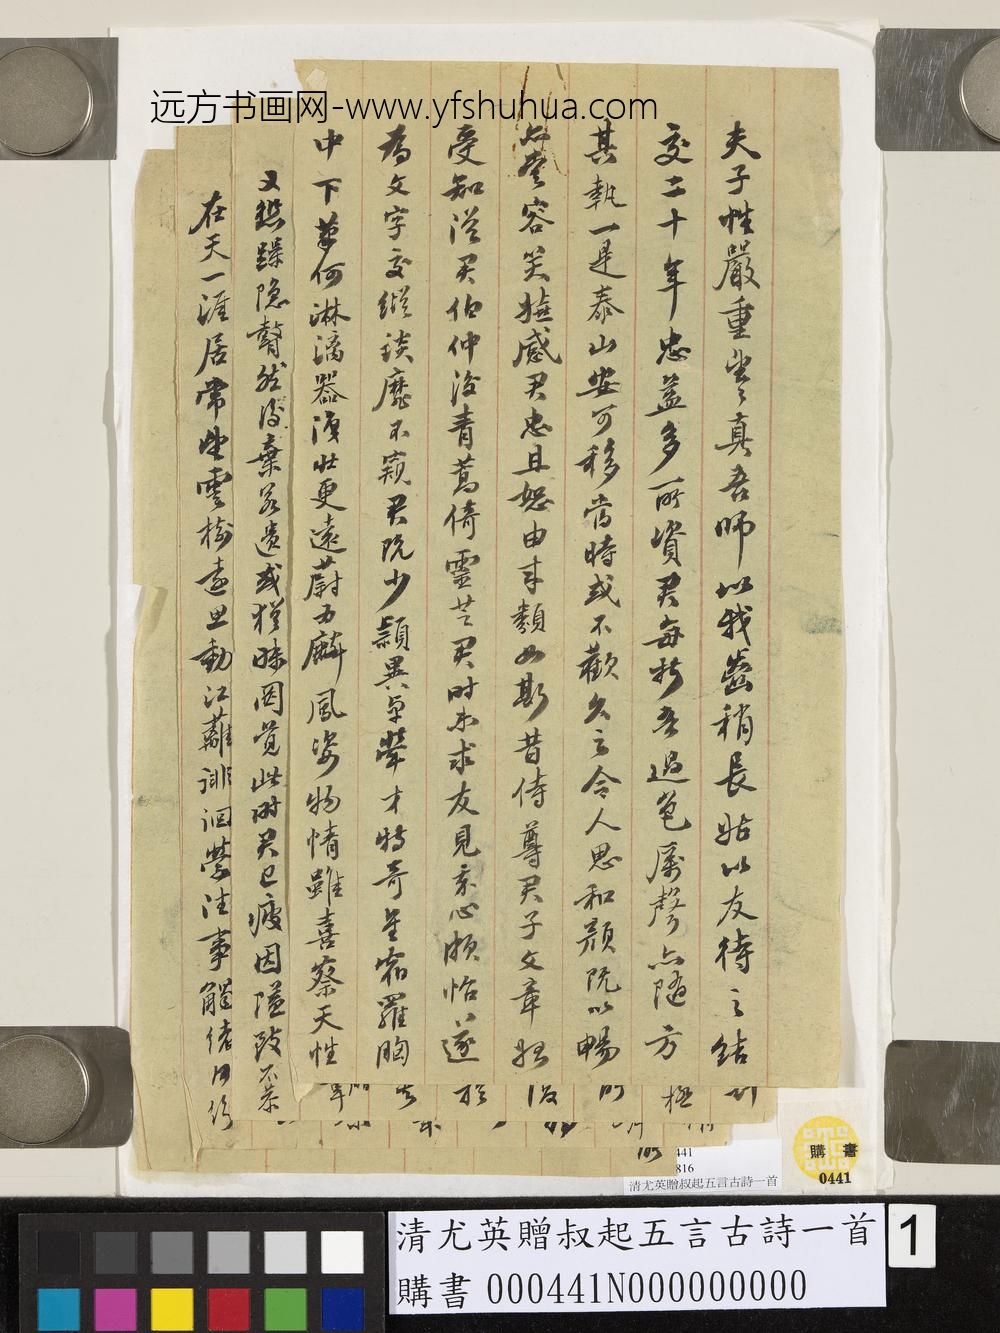 远方书画网-www.yfshuhua.com
夫子性嚴重真吾師以我齒稍長姑以友待之結
交二十年忠益多所資君每於吾過色厲聲亦隨方
其執一是泰山安可移當時或不歡久之令人思和顏既以暢
亦容笑嬉感君忠且恕由來類如斯昔侍尊君子文章
受知從君伯仲後青蔦倚靈芝君時未求友見余心頗怡遂
為文字交縱談靡不窺君既少穎異卓犖才特奇星宿羅胸
中下筆何淋漓器復壯更遠蔚為麟鳳姿物情雖喜察天性
又然後棄若遺或猶昧因覺此時君已疲因隘致不恭
在天一涯居常雲樹遠思動江蘺往事
441
816
清尤英贈叔起五言古詩一首
購書
0441
清尤英贈叔起五言古詩一首
購書 000441N000000000
1